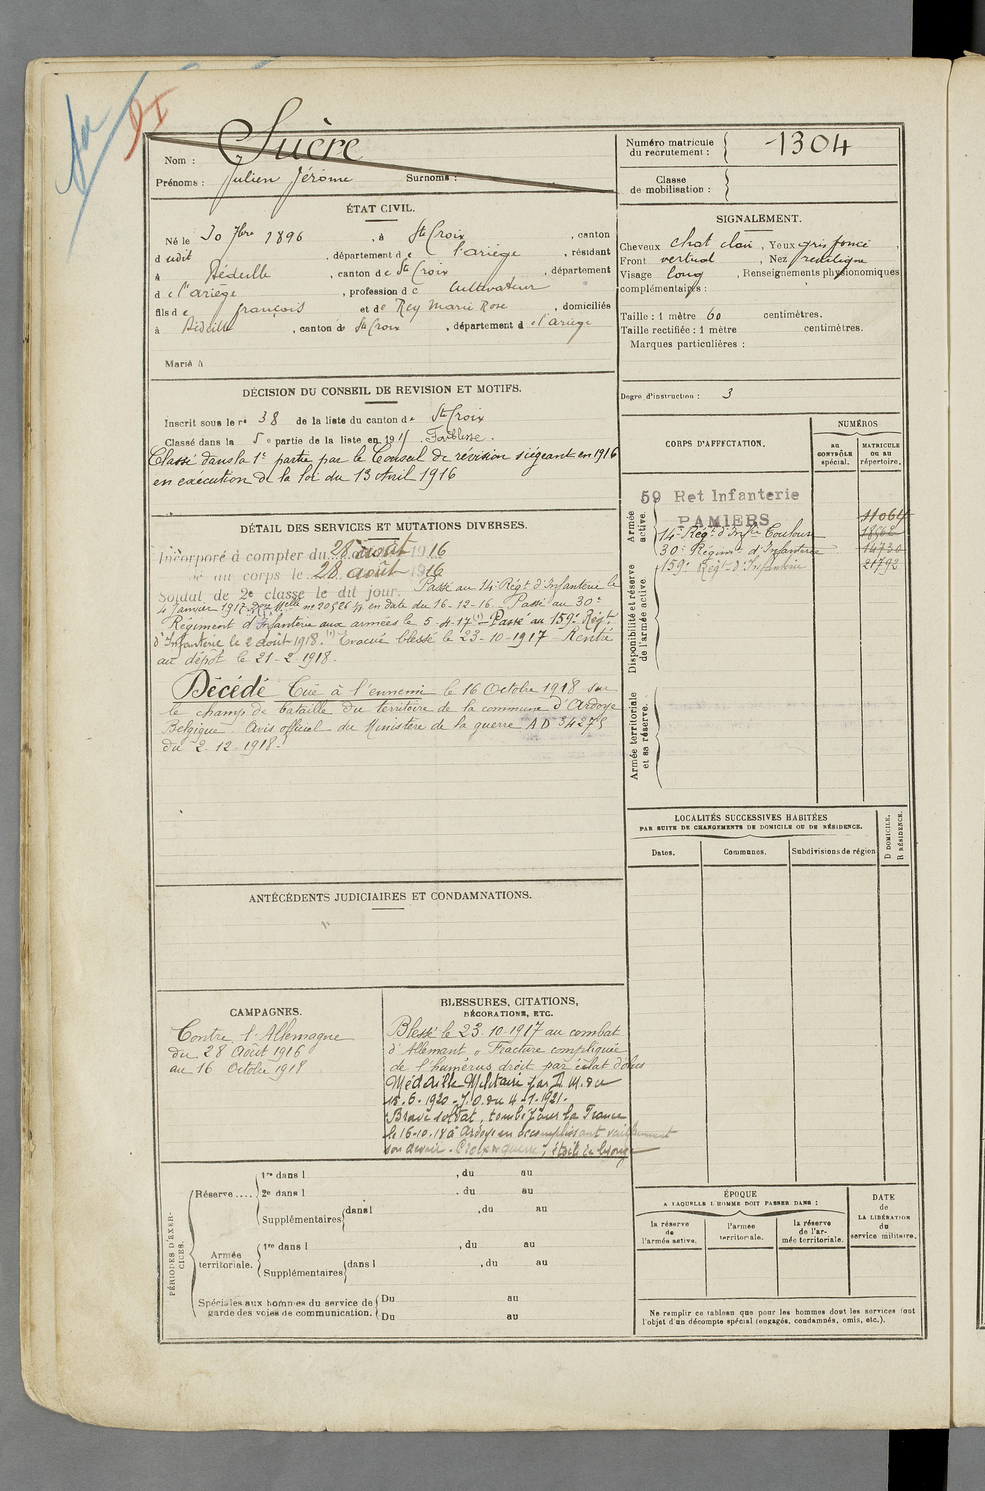 9I
Nom : Suère
Prénoms : Julien Jérôme Surnoms :
Numéro matricule du recrutement : 1304
Classe de mobilisation :
ÉTAT CIVIL.
Né le 30 7bre 1896, à Ste Croix, canton
dudit, département de l'ariège, résidant
à Bédeille, canton de Ste Croix, département
de l'ariège, profession de Cultivateur
fils de françois et de Rey Marie Rose, domiciliés
à Bédeille, canton de Ste Croix, département de l'ariège
Marié à
SIGNALEMENT.
Cheveux chat clair, Yeux gris foncé,
Front vertical, Nez rectiligne
Visage long, Renseignements physionomiques
complémentaires :
Taille : 1 mètre 60 centimètres.
Taille rectifiée : 1 mètre centimètres.
Marques particulières :
Degré d'instruction : 3
DÉCISION DU CONSEIL DE REVISION ET MOTIFS.
Inscrit sous le no 38 de la liste du canton de Ste Croix
Classé dans la 5e partie de la liste en 1915. Faiblesse.
Classé dans la 1e partie par le Conseil de révision siégeant en 1916
en exécution de la loi du 13 Avril 1916
DÉTAIL DES SERVICES ET MUTATIONS DIVERSES.
Incorporé à compter du 28 août 1916
au corps le 28 août 1916
Soldat de 2e classe le dit jour. Passé au 14e Régt d'Infanterie le
4 Janvier 1917 Don Mlle no 20526 4/1 en date du 16-12-16. Passé au 30e
Régiment d'Infanterie aux armées le 5-4-17 (1) - Passé au 159e Régt
d'Infanterie le 2 août 1918. (1) Evacué blessé le 23-10-1917 Rentré
au dépôt le 21-2-1918.
Décédé Tué à l'ennemi le 16 Octobre 1918 sur
le champ de bataille du territoire de la commune d'Ardoye
Belgique Avis officiel du Ministère de la guerre AD 34275
du 2-12-1918.
CORPS D'AFFECTATION.
NUMÉROS
AU CONTRÔLE spécial.
MATRICULE OU AU répertoire.
Armée active.
59 Ret Infanterie
PAMIERS 11064
14e Régt d'Infie Toulouse 18968
30e Régiment d'Infanterie 14730
159e Régt d'Infanterie 21792
Disponibilité et réserve de l'armée active.
Armée territoriale et sa réserve.
LOCALITÉS SUCCESSIVES HABITÉES
PAR SUITE DE CHANGEMENTS DE DOMICILE OU DE RÉSIDENCE.
Dates.
Communes.
Subdivisions de région
D DOMICILE.
R RÉSIDENCE.
ANTÉCÉDENTS JUDICIAIRES ET CONDAMNATIONS.
CAMPAGNES.
Contre l'Allemagne
du 28 Août 1916
au 16 Octobre 1918
BLESSURES, CITATIONS,
DÉCORATIONS, ETC.
Blessé le 23-10-1917 au combat
d'Allemant, Fracture compliquée
de l'humérus droit par éclat d'obus
Médaille Militaire par A. M. du
15.6.1920 - J.O. du 4-1-1921.
Brave soldat, tombé pour la France
le 16-10-18 à Ardoye en accomplissant vaillamment
son devoir - Croix de guerre, étoile de bronze
PÉRIODES D'EXERCICES.
Réserve.... 1re dans l , du au
2e dans l , du au
Supplémentaires dans l , du au
Armée territoriale. 1re dans l , du au
Supplémentaires dans l , du au
Spéciales aux hommes du service de garde des voies de communication. Du au
Du au
ÉPOQUE
A LAQUELLE L'HOMME DOIT PASSER DANS :
la réserve de l'armée active.
l'armée territoriale.
la réserve de l'armée territoriale.
DATE de LA LIBÉRATION du service militaire.
Ne remplir ce tableau que pour les hommes dont les services font
l'objet d'un décompte spécial (engagés, condamnés, omis, etc.).